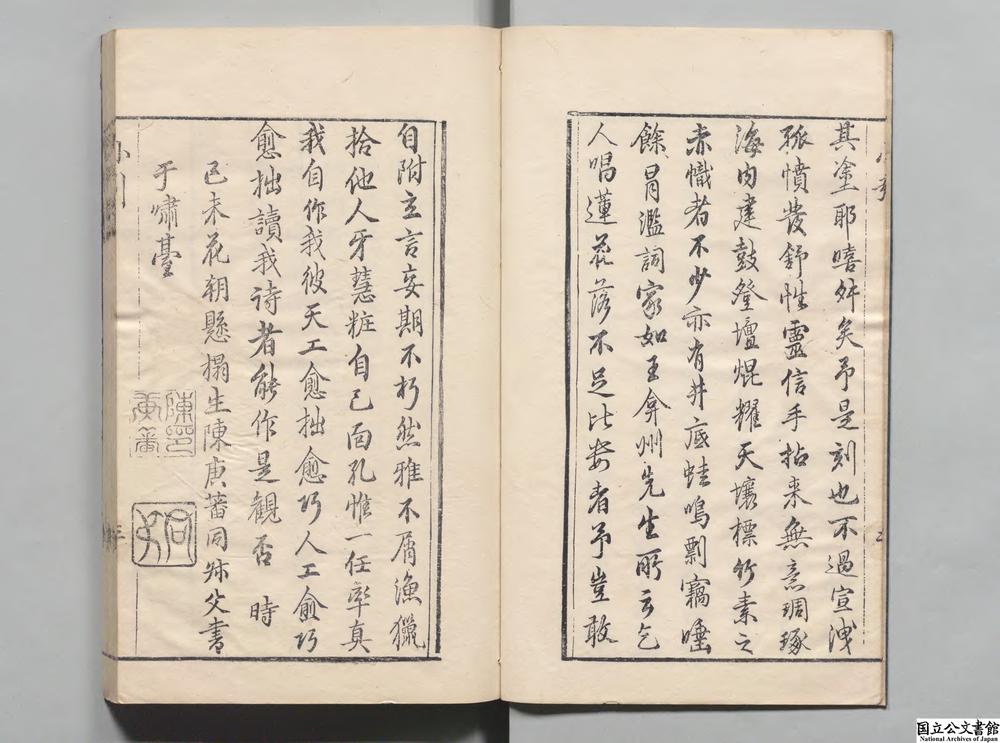 其塗耶嘻舛矣予是刻也不過宣洩
孤憤發舒性靈信手拈来無意琱琢
海内建鼓登壇焜耀天壤標竹素之
赤幟者不少亦有井底蛙鳴剽竊唾
餘冒濫詞家如王弇州先生所云乞
人唱蓮花落不足比數者予豈敢
自附立言妄期不朽然雅不屑漁獵
拾他人牙慧粧自己面孔惟一任率真
我自作我彼天工愈拙愈巧人工愈巧
愈拙讀我诗者能作是觀否 時
己未花朝懸榻生陳庚蕃同叔父書
于嘯臺
小引
三
国立公文書館
National Archives of Japan